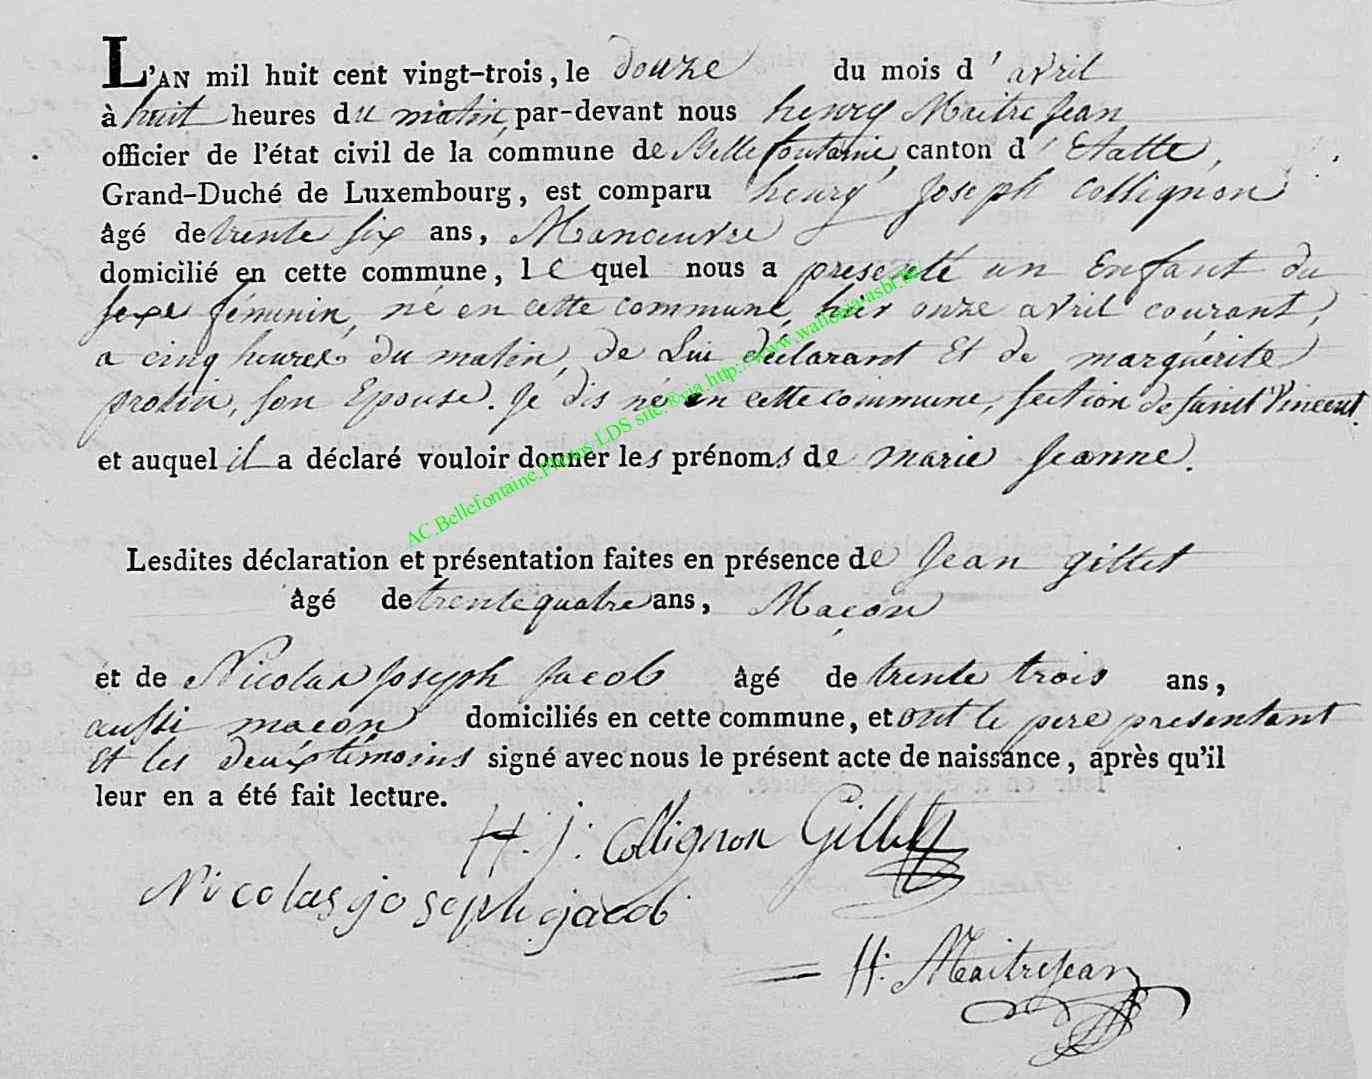 L'AN mil huit cent vingt-trois, le douze du mois d'avril
à huit heures du matin, par-devant nous henry Maitrejean
officier de l'état civil de la commune de Bellefontaine, canton d'Etalle,
Grand-Duché de Luxembourg, est comparu henry Joseph Collignon
âgé de trente six ans, Manœuvre
domicilié en cette commune, le quel nous a presenté un Enfant du
sexe féminin, né en cette commune, hier onze avril courant,
a cinq heures du matin, de Lui déclarant Et de marguerite
protin, son Epouse. Je dis né en cette commune, section de saint Vincent.
et auquel il a déclaré vouloir donner les prénoms de marie Jeanne.
AC.Bellefontaine.Photos LDS site
Lesdites déclaration et présentation faites en présence de Jean gillet
âgé de trente quatre ans, Maçon
et de Nicolas Joseph Jacob âgé de trente trois ans,
aussi macon domiciliés en cette commune, et ont le pere presentant
Et les deux témoins signé avec nous le présent acte de naissance, après qu'il
leur en a été fait lecture.
H. J. Collignon Gillet
Nicolas joseph jacob
H. Maitrejean